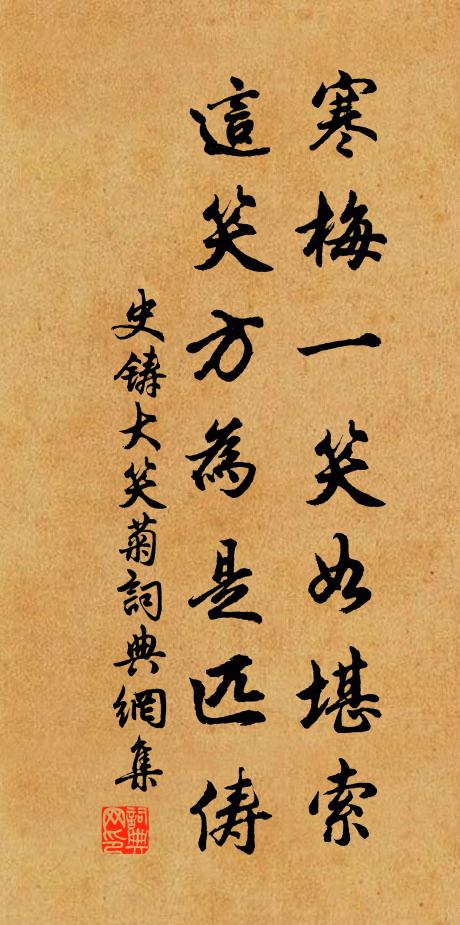 寒梅一笑如堪索
這笑方為是匹儔
史鑄大笑菊詞典網集
詞典網印